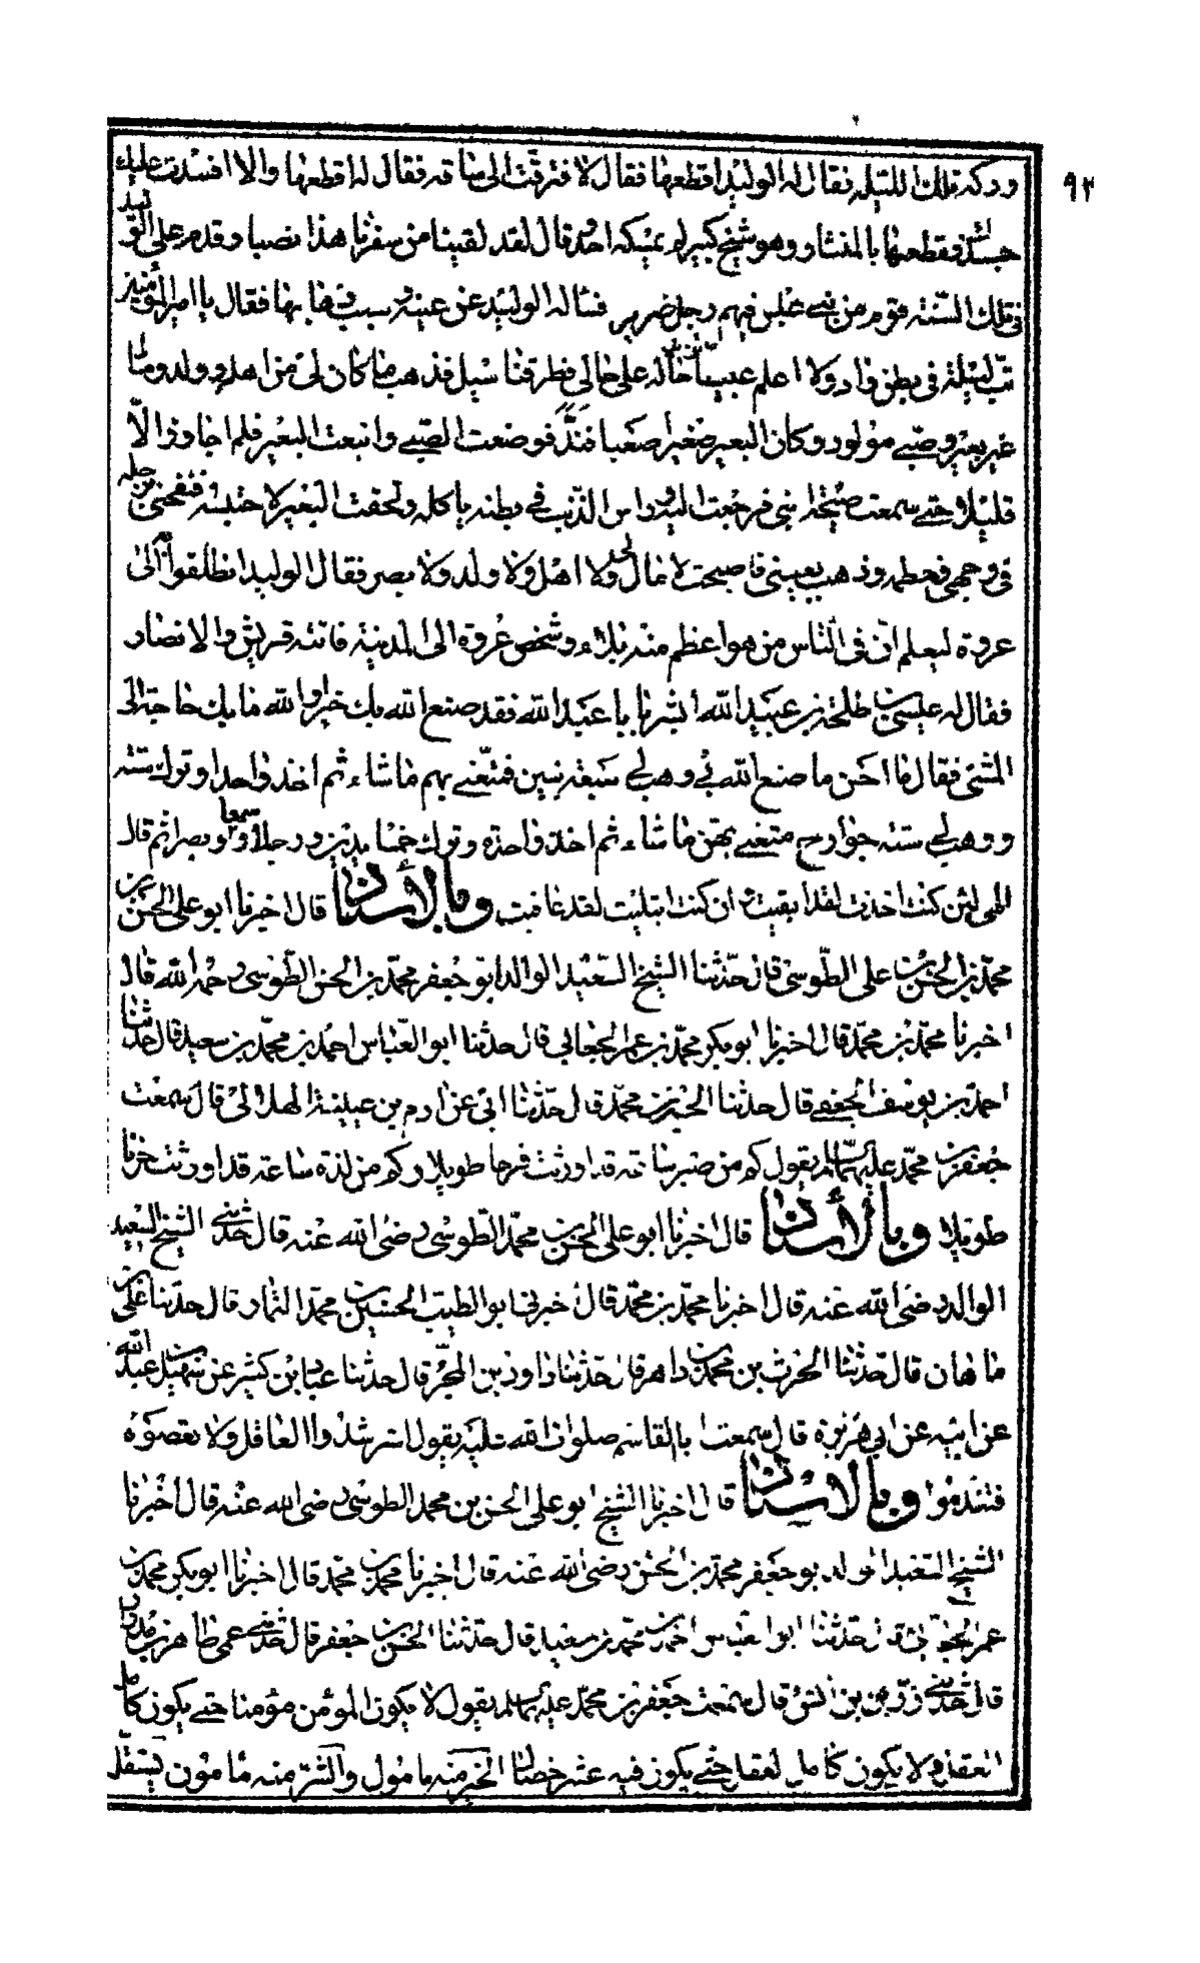 ٩٣
وركه تلك الليله فقال له الوليد اقطعها فقال لا فترقت الى ساقه فقال له اقطعها والا افسدت عليك
جسدك فقطعها بالمنشار وهو شيخ كبير لم يمسكه احد وقال لقد لقينا من سفرنا هذا نصبا وقدم على الوليد
فى تلك السّنة قوم من بنى عبس فيهم رجل ضرير فساله الوليد عن عينه وسبب ذهابها فقال يا امير المؤمنين
بتّ ليلة فى بطن واد ولا اعلم عبسيا حاله على حالى فطرقنا سيل فذهب ما كان لى من اهل وولد ومال
غير بعير وصبى مولود وكان البعير صعبا فندّ فوضعت الصّبى واتبعت البعير فلم اجاوز الاّ
قليلا حتى سمعت صيحة ابنى فرجعت اليه وراس الذّئب فى بطنه ياكله ولحقت البعير لاحتبسه فنفحنى برجله
فى وجهى فحطمه وذهب بعينى فاصبحت لا مال لى ولا اهل ولا ولد ولا بصر فقال الوليد انطلقوا به الى
عروة ليعلم انّ فى النّاس من هو اعظم منه بلاء وشخص عروة الى المدينة فاتته قريش والانصار
فقال له عيسى بن طلحة بن عبيد الله ابشر يا با عبد الله فقد صنع الله بك خيرا والله ما بك حاجة الى
المشى فقال ما احسن ما صنع الله بى وهب لى سبعة بنين فمتّعنى بهم ما شاء ثم اخذ واحدا وترك ستّة
ووهب لى ستة جوارح متعنى بهنّ ما شاء ثم اخذ واحدة وترك خمسا يدين ورجلا وسمعا وبصرا ثم قال
الهى لئن كنت اخذت لقد ابقيت وان كنت ابتليت لقد عافيت وبالاسناد قال اخبرنا ابو على الحسن بن
محمّد بن الحسن بن على الطّوسى قال حدّثنا الشيخ السّعيد الوالد ابو جعفر محمّد بن الحسن الطّوسى رحمه الله قال
اخبرنا محمّد بن محمّد قال اخبرنا ابو بكر محمّد بن عمر الجعابى قال حدثنا ابو العّباس احمد بن محمّد بن سعيد قال حدّثنا
احمد بن يوسف الجعفى قال حدثنا الحسين بن محمّد قال حدّثنا ابى عن ادم بن عيينة الهلالى قال سمعت
جعفر بن محمّد عليهما السلام يقول كم من صبر ساعة قد اورثت فرحا طويلا وكم من لذة ساعة قد اورثت حزنا
طويلا وبالاسناد قال اخبرنا ابو على الحسن بن محمّد الطّوسى رضى الله عنه قال حدّثنى الشيخ السّعيد
الوالد رضى الله عنه قال اخبرنا محمّد بن محمّد قال اخبرنى ابو الطيب الحسين بن محمّد التمار قال حدّثنا على بن
ماهان قال حدّثنا الحرث بن محمد بن داهر قال حدّثنا داود بن المحبّر قال حدثنا عباد بن كثير عن سهيل بن عبد الله
عن ابيه عن ابى هريرة قال سمعت ابا القاسم صلوات الله عليه يقول استرشدوا العاقل ولا تعصوه
فتندموا وبالاسناد قال اخبرنا الشيخ ابو على الحسن بن محمد الطوسى رضى الله عنه قال اخبرنا
الشيخ السّعيد الوالد ابو جعفر محمّد بن الحسن رضى الله عنه قال اخبرنا محمّد بن محمّد قال اخبرنا ابو بكر محمّد بن
عمر الجعابى قال حدّثنا ابو العّباس احمد بن محمّد بن سعيد قال حدّثنا الحسن بن جعفر قال حدّثنى عمى طاهر بن مدرار
قال حدّثنى زرّ بن انس قال سمعت جعفر بن محمّد عليهما السلام يقول لا يكون المؤمن مؤمنا حتى يكون كامل
العقل ولا يكون كامل العقل حتى يكون فيه عشر خصال الخير منه مامول والشّر منه مامون يستقلّ